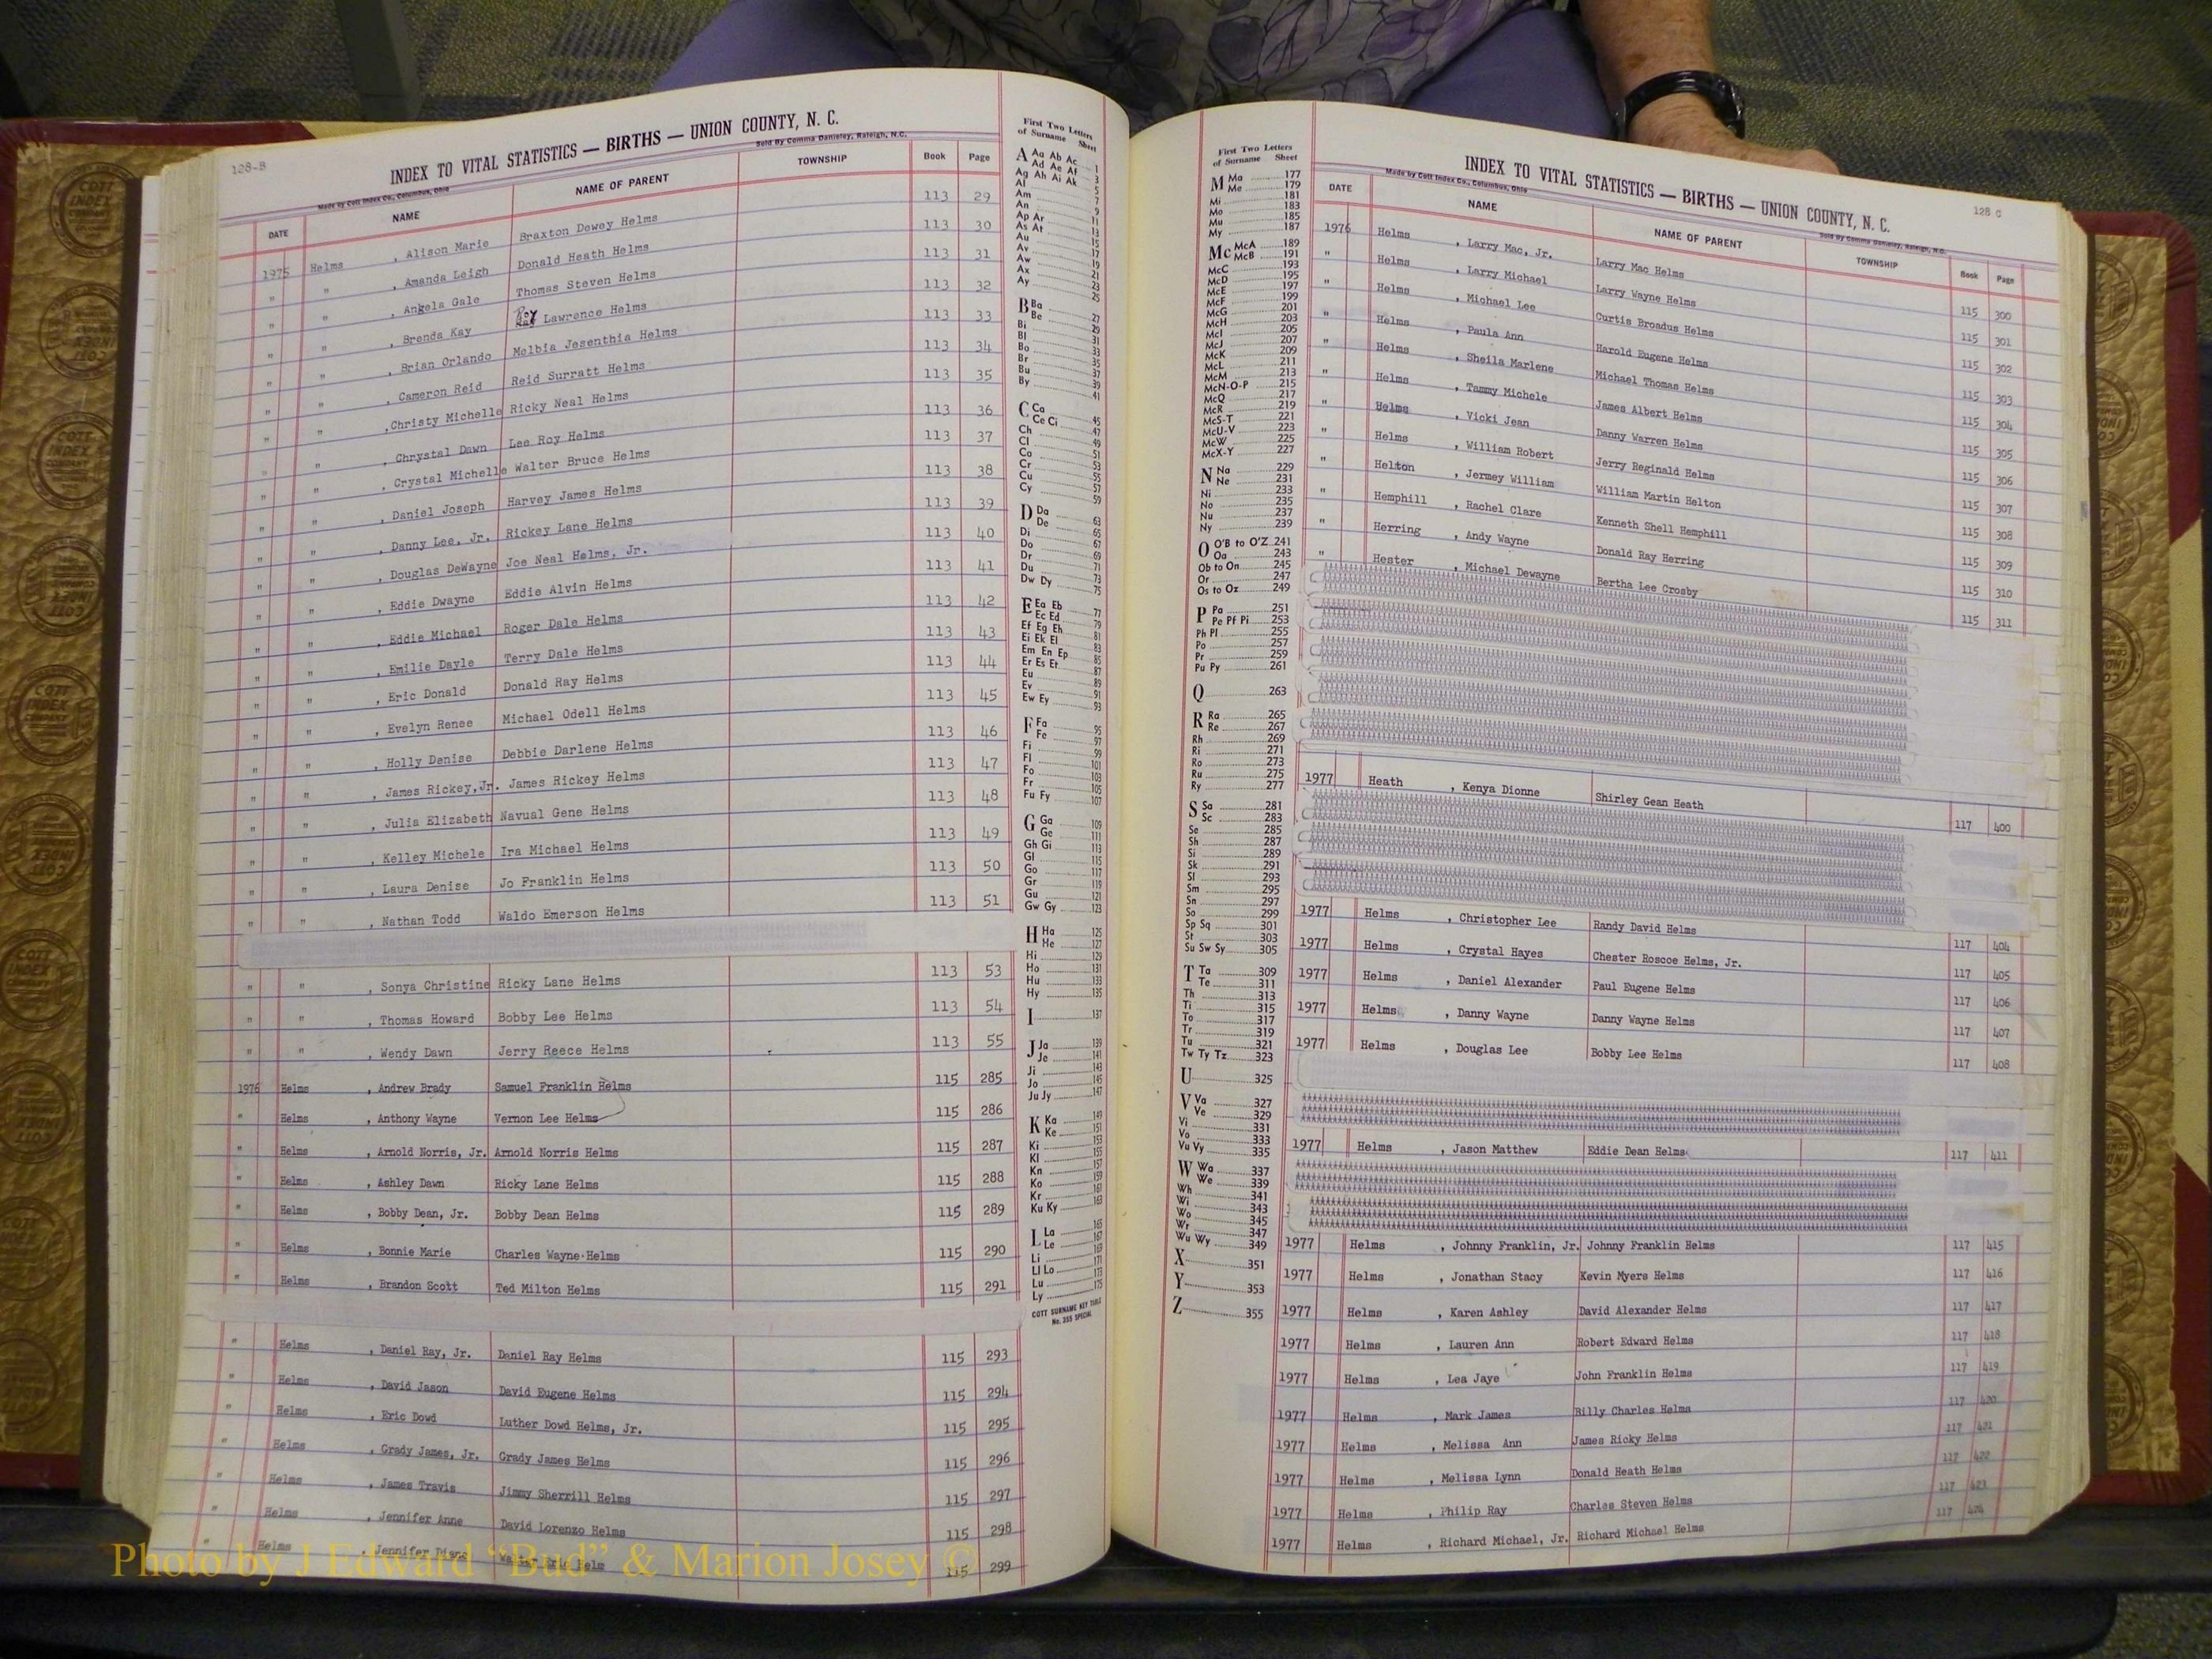 128-B
INDEX TO VITAL STATISTICS — BIRTHS — UNION COUNTY, N. C.
Made by Cott Index Co., Columbus, Ohio
Sold By Comma Danieley, Raleigh, N.C.
DATE NAME NAME OF PARENT TOWNSHIP Book Page
1975 Helms , Alison Marie Braxton Dewey Helms 113 29
" " , Amanda Leigh Donald Heath Helms 113 30
" " , Angela Gale Thomas Steven Helms 113 31
" " , Brenda Kay Roy Lawrence Helms 113 32
" " , Brian Orlando Melbia Jesenthia Helms 113 33
" " , Cameron Reid Reid Surratt Helms 113 34
" " , Christy Michelle Ricky Neal Helms 113 35
" " , Chrystal Dawn Lee Roy Helms 113 36
" " , Crystal Michelle Walter Bruce Helms 113 37
" " , Daniel Joseph Harvey James Helms 113 38
" " , Danny Lee, Jr. Rickey Lane Helms 113 39
" " , Douglas DeWayne Joe Neal Helms, Jr. 113 40
" " , Eddie Dwayne Eddie Alvin Helms 113 41
" " , Eddie Michael Roger Dale Helms 113 42
" " , Emilie Dayle Terry Dale Helms 113 43
" " , Eric Donald Donald Ray Helms 113 44
" " , Evelyn Renee Michael Odell Helms 113 45
" " , Holly Denise Debbie Darlene Helms 113 46
" " , James Rickey, Jr. James Rickey Helms 113 47
" " , Julia Elizabeth Navual Gene Helms 113 48
" " , Kelley Michele Ira Michael Helms 113 49
" " , Laura Denise Jo Franklin Helms 113 50
" " , Nathan Todd Waldo Emerson Helms 113 51
" " , Sonya Christine Ricky Lane Helms 113 53
" " , Thomas Howard Bobby Lee Helms 113 54
" " , Wendy Dawn Jerry Reece Helms 113 55
1976 Helms , Andrew Brady Samuel Franklin Helms 115 285
" Helms , Anthony Wayne Vernon Lee Helms 115 286
" Helms , Arnold Norris, Jr. Arnold Norris Helms 115 287
" Helms , Ashley Dawn Ricky Lane Helms 115 288
" Helms , Bobby Dean, Jr. Bobby Dean Helms 115 289
" Helms , Bonnie Marie Charles Wayne Helms 115 290
" Helms , Brandon Scott Ted Milton Helms 115 291
" Helms , Daniel Ray, Jr. Daniel Ray Helms 115 293
" Helms , David Jason David Eugene Helms 115 294
" Helms , Eric Dowd Luther Dowd Helms, Jr. 115 295
" Helms , Grady James, Jr. Grady James Helms 115 296
" Helms , James Travis Jimmy Sherrill Helms 115 297
" Helms , Jennifer Anne David Lorenzo Helms 115 298
" Helms , Jennifer 115 299
First Two Letters
of Surname Sheet
A Aa Ab Ac 1
Ad Ae Af 3
Ag Ah Ai Ak 5
Al 7
Am 9
An 11
Ap Ar 13
As At 15
Au 17
Av 19
Aw 21
Ax 23
Ay 25
B Ba 27
Be 29
Bi 31
Bl 33
Bo 35
Br 37
Bu 39
By 41
C Ca 45
Ce Ci 47
Ch 49
Cl 51
Co 53
Cr 55
Cu 57
Cy 59
D Da 63
De 65
Di 67
Do 69
Dr 71
Du 73
Dw Dy 75
E Ea Eb 77
Ec Ed 79
Ef Eg Eh 81
Ei Ek El 83
Em En Ep 85
Er Es Et 87
Eu 89
Ev 91
Ew Ey 93
F Fa 95
Fe 97
Fi 99
Fl 101
Fo 103
Fr 105
Fu Fy 107
G Ga 109
Ge 111
Gh Gi 113
Gl 115
Go 117
Gr 119
Gu 121
Gw Gy 123
H Ha 125
He 127
Hi 129
Ho 131
Hu 133
Hy 135
I 137
J Ja 139
Je 141
Ji 143
Jo 145
Ju Jy 147
K Ka 149
Ke 151
Ki 153
Kl 155
Kn 157
Ko 159
Kr 161
Ku Ky 163
L La 165
Le 167
Li 169
Ll Lo 171
Lu 173
Ly 175
COTT SURNAME KEY TABLE
No. 355 SPECIAL
First Two Letters
of Surname Sheet
M Ma 177
Me 179
Mi 181
Mo 183
Mu 185
My 187
Mc McA 189
McB 191
McC 193
McD 195
McE 197
McF 199
McG 201
McH 203
McI 205
McJ 207
McK 209
McL 211
McM 213
McN-O-P 215
McQ 217
McR 219
McS-T 221
McU-V 223
McW 225
McX-Y 227
N Na 229
Ne 231
Ni 233
No 235
Nu 237
Ny 239
O O'B to O'Z 241
Oa 243
Ob to On 245
Or 247
Os to Oz 249
P Pa 251
Pe Pf Pi 253
Ph Pl 255
Po 257
Pr 259
Pu Py 261
Q 263
R Ra 265
Re 267
Rh 269
Ri 271
Ro 273
Ru 275
Ry 277
S Sa 281
Sc 283
Se 285
Sh 287
Si 289
Sk 291
Sl 293
Sm 295
Sn 297
So 299
Sp Sq 301
St 303
Su Sw Sy 305
T Ta 309
Te 311
Th 313
Ti 315
To 317
Tr 319
Tu 321
Tw Ty Tz 323
U 325
V Va 327
Ve 329
Vi 331
Vo 333
Vu Vy 335
W Wa 337
We 339
Wh 341
Wi 343
Wo 345
Wr 347
Wu Wy 349
X 351
Y 353
Z 355
128 C
INDEX TO VITAL STATISTICS — BIRTHS — UNION COUNTY, N. C.
Made by Cott Index Co., Columbus, Ohio
Sold By Comma Danieley, Raleigh, N.C.
DATE NAME NAME OF PARENT TOWNSHIP Book Page
1976 Helms , Larry Mac, Jr. Larry Mac Helms 115 300
" Helms , Larry Michael Larry Wayne Helms 115 301
" Helms , Michael Lee Curtis Broadus Helms 115 302
" Helms , Paula Ann Harold Eugene Helms 115 303
" Helms , Sheila Marlene Michael Thomas Helms 115 304
" Helms , Tammy Michele James Albert Helms 115 305
" Helms , Vicki Jean Danny Warren Helms 115 306
" Helms , William Robert Jerry Reginald Helms 115 307
" Helton , Jermey William William Martin Helton 115 308
" Hemphill , Rachel Clare Kenneth Shell Hemphill 115 309
" Herring , Andy Wayne Donald Ray Herring 115 310
" Hester , Michael Dewayne Bertha Lee Crosby 115 311
1977 Heath , Kenya Dionne Shirley Gean Heath 117 400
1977 Helms , Christopher Lee Randy David Helms 117 404
1977 Helms , Crystal Hayes Chester Roscoe Helms, Jr. 117 405
1977 Helms , Daniel Alexander Paul Eugene Helms 117 406
1977 Helms , Danny Wayne Danny Wayne Helms 117 407
1977 Helms , Douglas Lee Bobby Lee Helms 117 408
1977 Helms , Jason Matthew Eddie Dean Helms 117 411
1977 Helms , Johnny Franklin, Jr. Johnny Franklin Helms 117 415
1977 Helms , Jonathan Stacy Kevin Myers Helms 117 416
1977 Helms , Karen Ashley David Alexander Helms 117 417
1977 Helms , Lauren Ann Robert Edward Helms 117 418
1977 Helms , Lea Jaye John Franklin Helms 117 419
1977 Helms , Mark James Billy Charles Helms 117 420
1977 Helms , Melissa Ann James Ricky Helms 117 421
1977 Helms , Melissa Lynn Donald Heath Helms 117 422
1977 Helms , Philip Ray Charles Steven Helms 117 423
1977 Helms , Richard Michael, Jr. Richard Michael Helms 117 424
Photo by J Edward “Bud” & Marion Josey ©